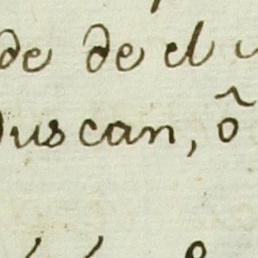 de de el
buscan, ô